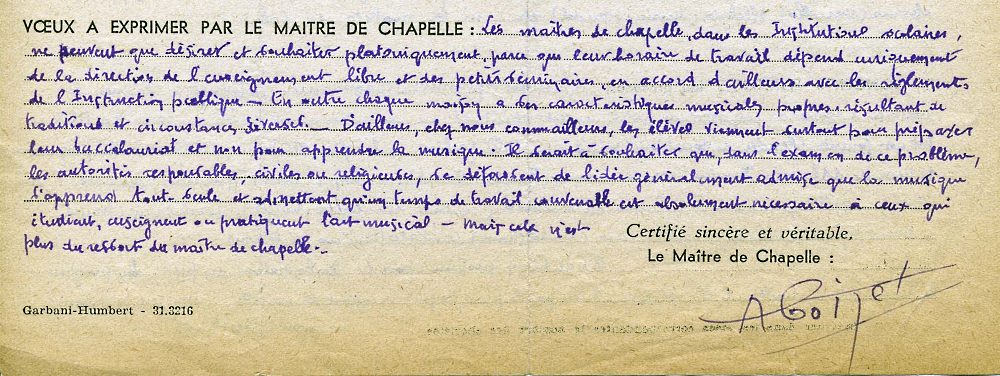 VŒUX A EXPRIMER PAR LE MAITRE DE CHAPELLE : Les maîtres de chapelle, dans les Institutions scolaires,
ne peuvent que désirer et souhaiter platoniquement, parce que leur horaire de travail dépend uniquement
de la direction de l'enseignement libre et des petits séminaires, en accord d'ailleurs avec les règlements
de l'Instruction publique — En outre chaque maison a des caractéristiques musicales propres, résultant de
traditions et circonstances diverses — D'ailleurs, chez nous comme ailleurs, les élèves viennent surtout pour préparer
leur baccalauréat et non pour apprendre la musique. Il serait à souhaiter que, dans l'examen de ce problème,
les autorités responsables, civiles ou religieuses, se défassent de l'idée généralement admise que la musique
s'apprend toute seule et admettent qu'un temps de travail convenable est absolument nécessaire à ceux qui
étudient, enseignent ou pratiquent l'art musical — Mais cela n'est
plus du ressort du maître de chapelle. —
Certifié sincère et véritable,
Le Maître de Chapelle :
Garbani-Humbert - 31.3216